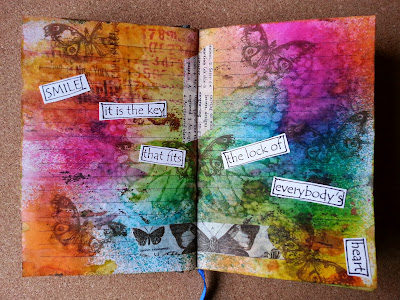 SMILE!
it is the key
that fits
the lock of
everybody's
heart